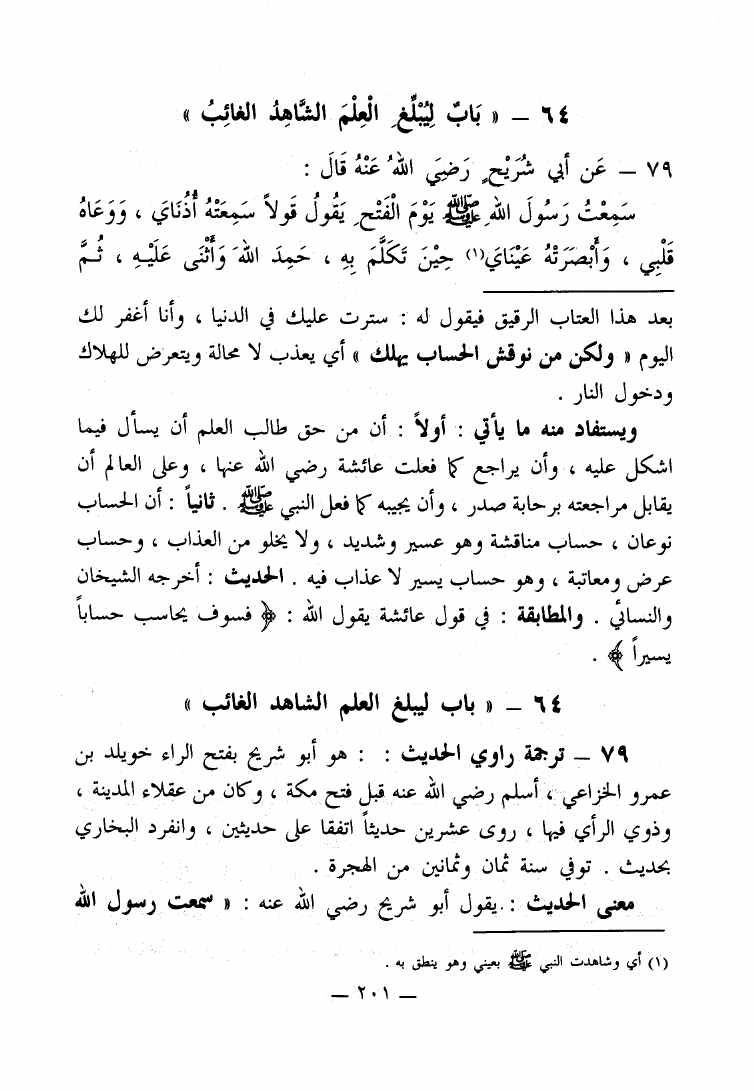 ٦٤ – « بَابٌ لِيُبَلِّغِ الْعِلْمَ الشَّاهِدُ الغائِبُ »
٧٩ – عَن أَبي شُرَيْحٍ رَضِيَ اللهُ عَنْهُ قَالَ :
سَمِعْتُ رَسُولَ اللهِ ﷺ يَوْمَ الْفَتْحِ يَقُولُ قَولاً سَمِعَتْهُ أُذُنَاي ، وَوَعَاهُ
قَلْبِي ، وَأَبْصَرَتْهُ عَيْنَاي(١) حِيْنَ تَكَلَّمَ بِهِ ، حَمِدَ اللهَ وَأَثْنَى عَلَيْهِ ، ثُمَّ
بعد هذا العتاب الرقيق فيقول له : سترت عليك في الدنيا ، وأنا أغفر لك
اليوم « ولكن من نوقش الحساب يهلك » أي يعذب لا محالة ويتعرض للهلاك
ودخول النار .
ويستفاد منه ما يأتي : أولاً : أن من حق طالب العلم أن يسأل فيما
اشكل عليه ، وأن يراجع كما فعلت عائشة رضي الله عنها ، وعلى العالم أن
يقابل مراجعته برحابة صدر ، وأن يجيبه كما فعل النبي ﷺ . ثانياً : أن الحساب
نوعان ، حساب مناقشة وهو عسير وشديد ، ولا يخلو من العذاب ، وحساب
عرض ومعاتبة ، وهو حساب يسير لا عذاب فيه . الحديث : أخرجه الشيخان
والنسائي . والمطابقة : في قول عائشة يقول الله : ﴿ فسوف يحاسب حساباً
يسيراً ﴾ .
٦٤ – « باب ليبلغ العلم الشاهد الغائب »
٧٩ – ترجمة راوي الحديث : : هو أبو شريح بفتح الراء خويلد بن
عمرو الخزاعي ، أسلم رضي الله عنه قبل فتح مكة ، وكان من عقلاء المدينة ،
وذوي الرأي فيها ، روى عشرين حديثاً اتفقا على حديثين ، وانفرد البخاري
بحديث . توفي سنة ثمان وثمانين من الهجرة .
معنى الحديث : يقول أبو شريح رضي الله عنه : « سمعت رسول الله
(١) أي وشاهدت النبي ﷺ بعيني وهو ينطق به .
– ٢٠١ –